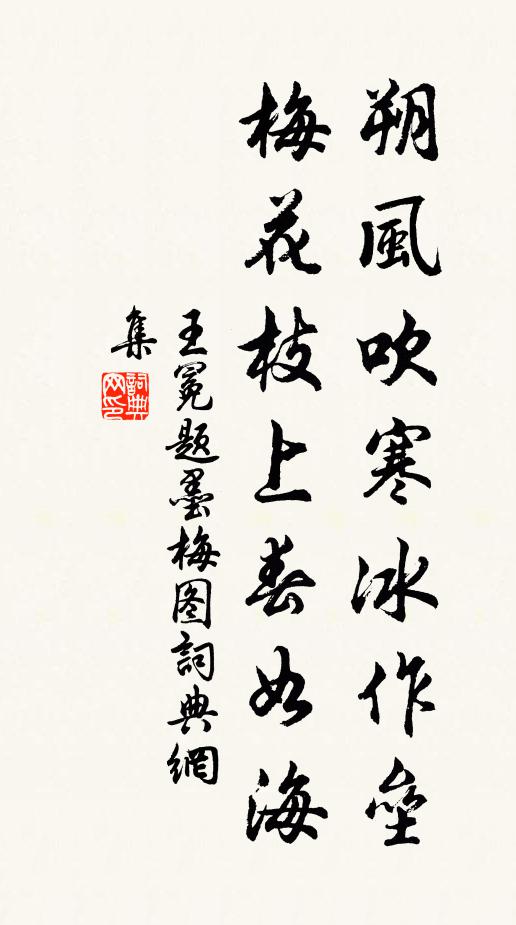 朔風吹寒冰作壘
梅花枝上春如海
王冕题墨梅图詞典網
集
詞典
网印